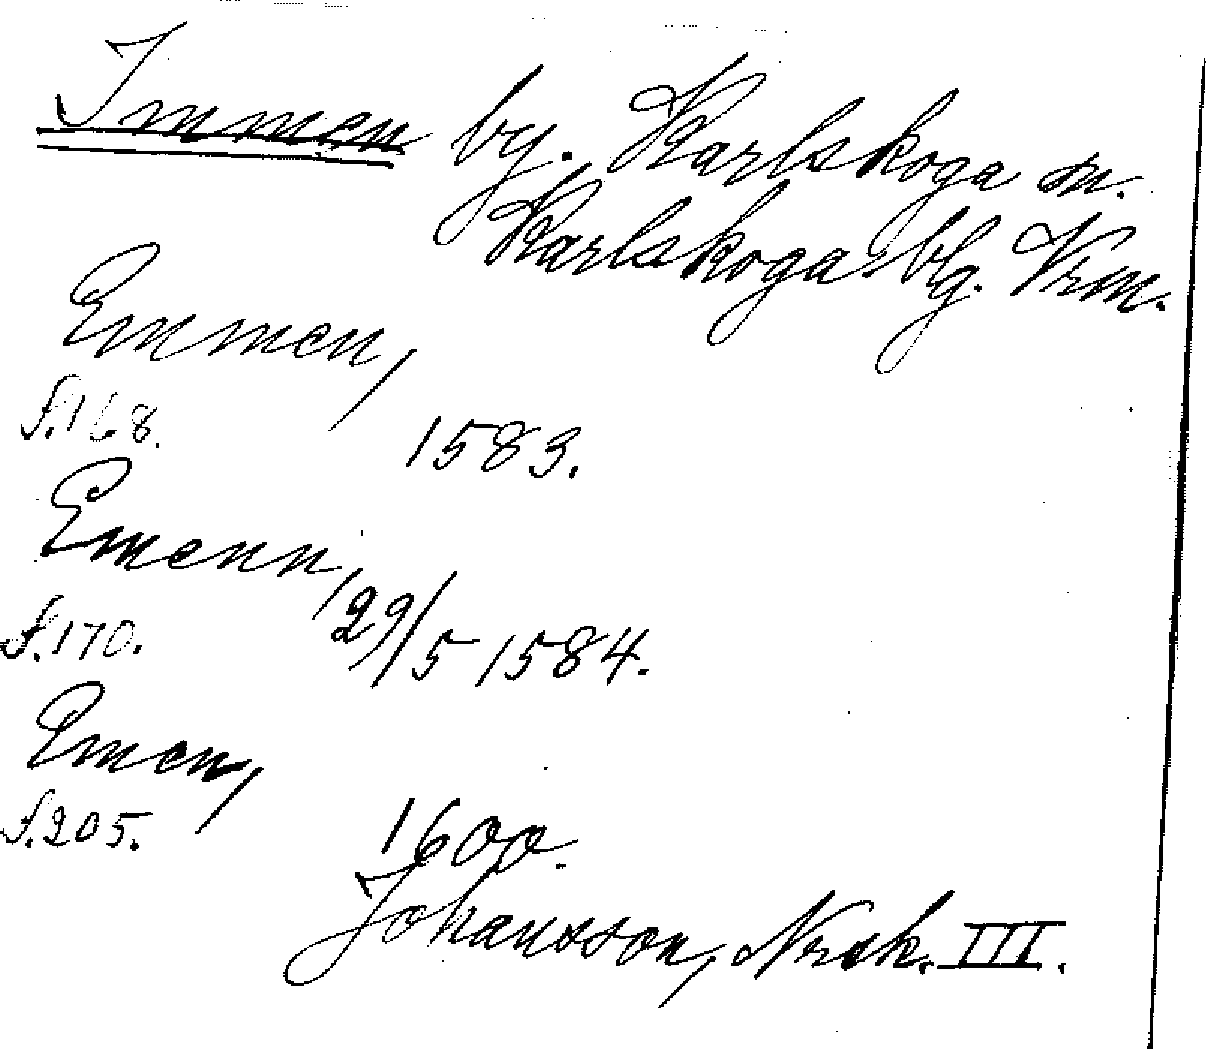 Immen by. Karlskoga sn.
Karlskoga blg. Vrm.
Emmen,
s. 168. 1583.
Emenn,
s. 170. 29/5 1584.
Emen,
s. 205. 1600.
Johansson, Norsk. III.